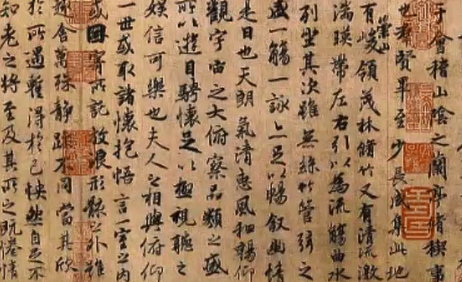 于會稽山陰之蘭亭脩稧事
也羣賢畢至少長咸集此地
有崇山峻領茂林脩竹又有清流激
湍暎帶左右引以為流觴曲水
列坐其次雖無絲竹管弦之
盛一觴一詠亦足以暢敘幽情
是日也天朗氣清惠風和暢仰
觀宇宙之大俯察品類之盛
所以遊目騁懷足以極視聽之
娛信可樂也夫人之相與俯仰
一世或取諸懷抱悟言一室之內
或因寄所託放浪形骸之外雖
趣舍萬殊靜躁不同當其欣
於所遇蹔得於己怏然自足不
知老之將至及其所之既惓情